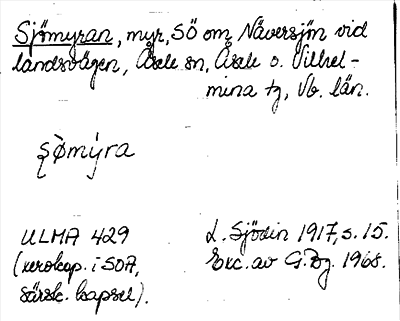 Sjömyran, myr, SÖ om Näversjön vid
landsvägen, Åsele sn, Åsele o. Vilhel-
mina tg, Vb. län.
ʂö̀mýra
ULMA 429
(xerokop. i SOA,
särsk. kapsel).
L. Sjödin 1917, s. 15.
Exc. av G. Bg. 1968.